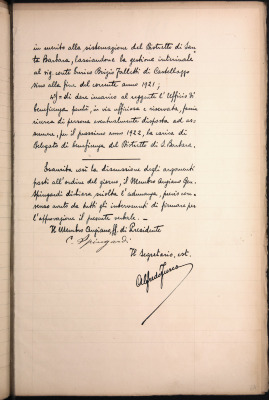 in merito alla sistemazione del Distretto di San-
ta Barbara, lasciandone la gestione interinale
al sig. conte Enrico Brizio Falletti di Castellazzo
sino alla fine del corrente anno 1921;
di dare incarico al reggente l'Ufficio di
beneficenza perché, in via ufficiosa e riservata, faccia
ricerca di persona eventualmente disposta ad as-
sumere, per il prossimo anno 1922, la carica di
Delegato di beneficenza del Distretto di S. Barbara.
Esaurita così la discussione degli argomenti
posti all'ordine del giorno, il Membro Anziano Gen.
Spingardi dichiara sciolta l'adunanza, previo con-
senso avuto da tutti gli intervenuti di firmare per
l'approvazione il presente verbale. _
Il Membro Anziano, ff. di Presidente
C. Spingardi
Il Segretario, est.
Alfredo